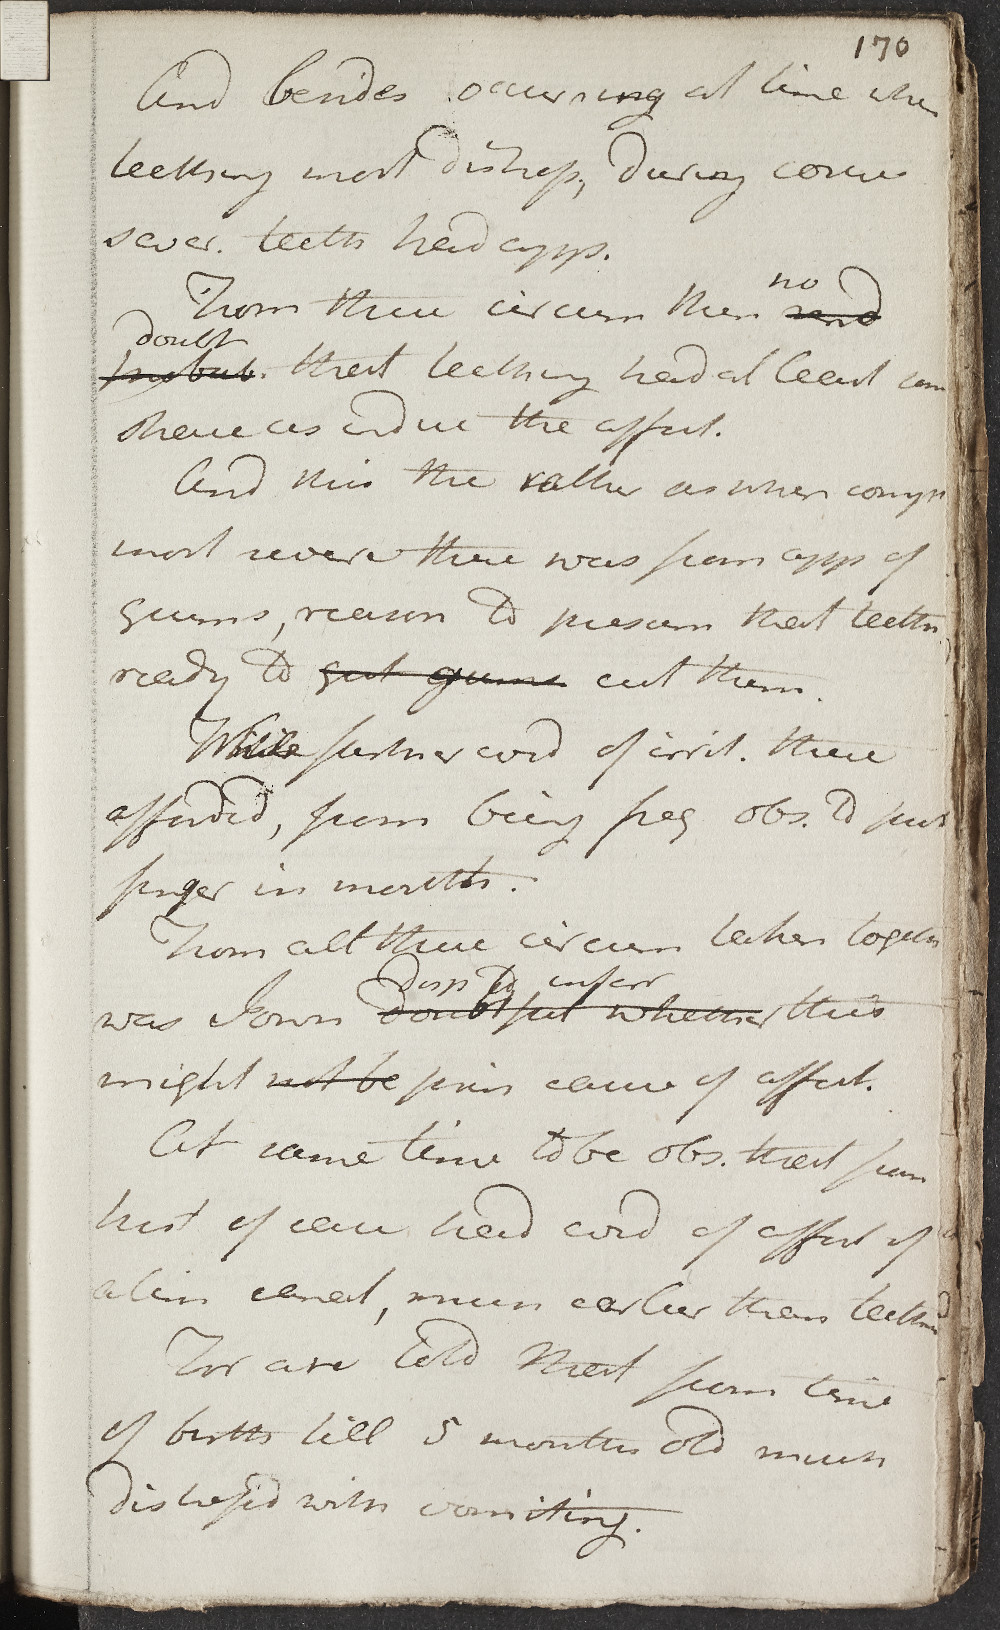 170
And besides occurring at time when
teething most distress, during course
sever. teeth had app.
From these circum then no
doubt
probab. that teething had at least some
share as induc the affect.
And this the rather as when comp
most severe there was from app of
gums, reason to presum that teeth
ready to cut gums cut them.
While further evid of irrit. there
afforded, from being freq obs. to put
finger in mouth.
From all these circum taken togeth
disp to infer
was I own doubtful whether this
might not be prin cause of affect.
At same time to be obs. that from
hist of case had evid of affect of
alim canal, much earlier than teeth
For are told that from time
of birth till 5 months old much
distressed with vomiting.